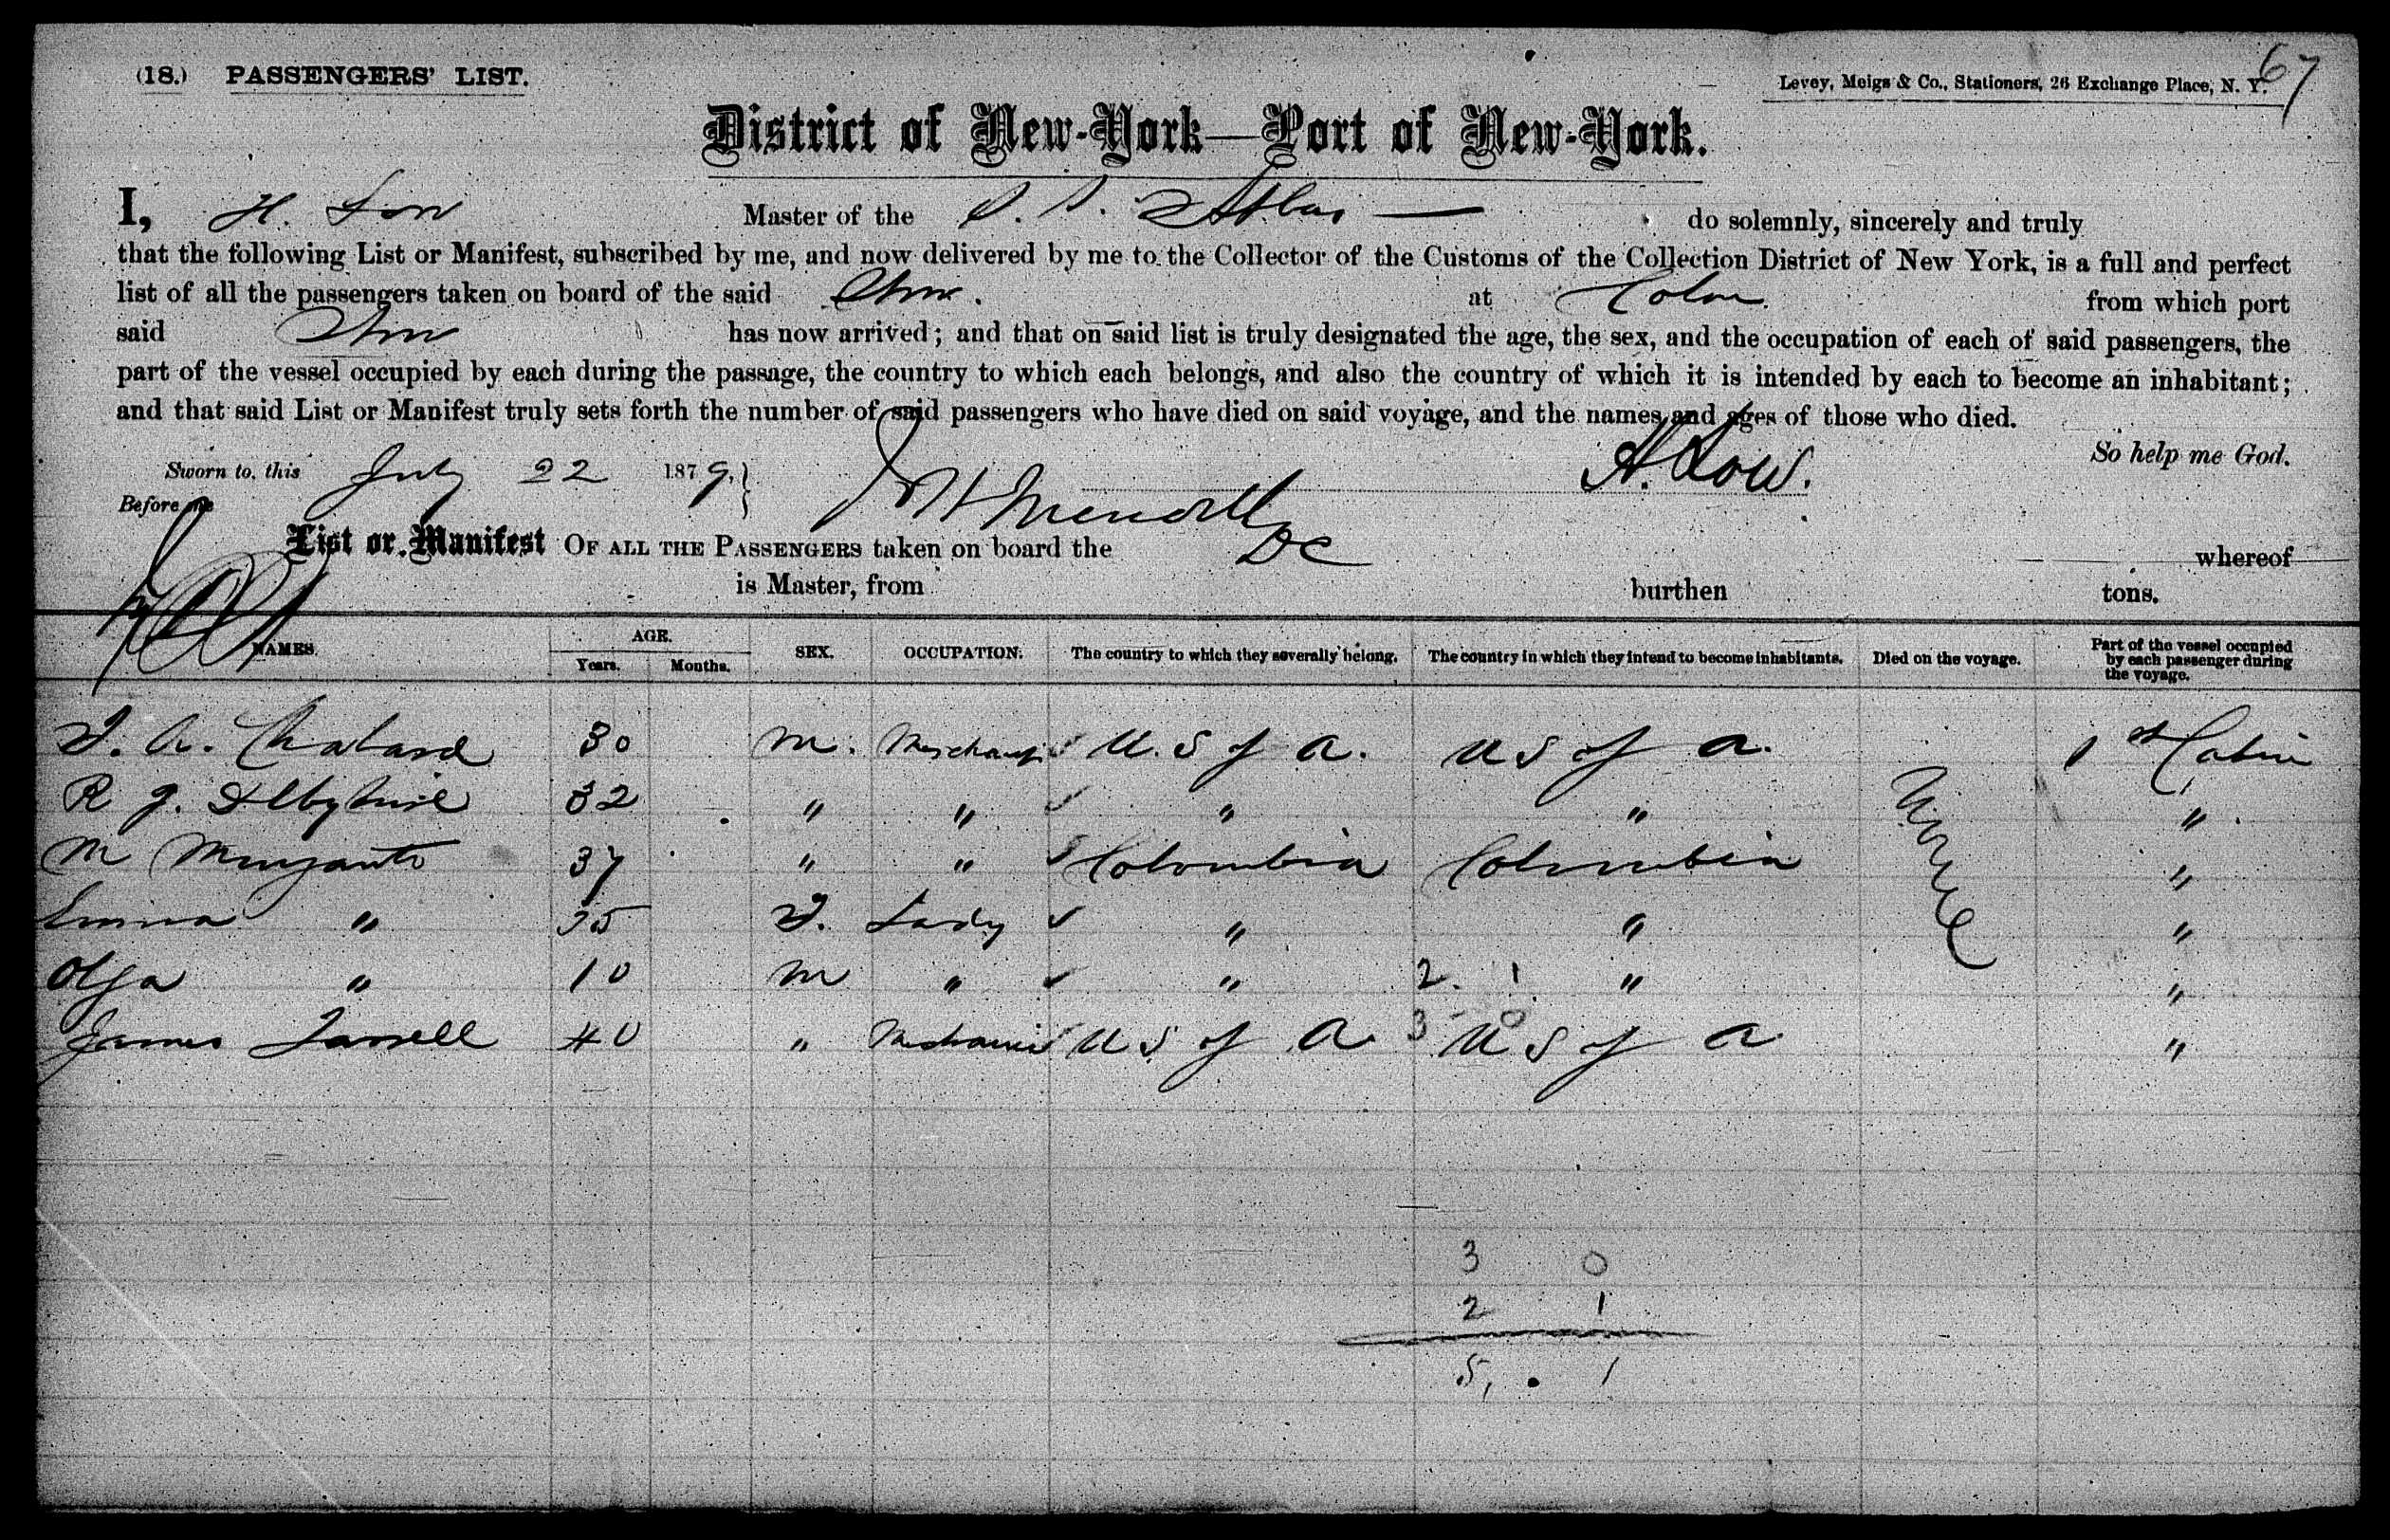 67
(18.) PASSENGERS' LIST. Levey, Meigs & Co., Stationers, 26 Exchange Place, N. Y.
District of New-York—Port of New-York.
I, H. Low Master of the S. S. Atlas do solemnly, sincerely and truly
that the following List or Manifest, subscribed by me, and now delivered by me to the Collector of the Customs of the Collection District of New York, is a full and perfect
list of all the passengers taken on board of the said at Colon from which port
said has now arrived; and that on said list is truly designated the age, the sex, and the occupation of each of said passengers, the
part of the vessel occupied by each during the passage, the country to which each belongs, and also the country of which it is intended by each to become an inhabitant;
and that said List or Manifest truly sets forth the number of said passengers who have died on said voyage, and the names and ages of those who died.
So help me God.
Sworn to, this July 22 1879, H. Low.
Before me
List or Manifest OF ALL THE PASSENGERS taken on board the DC whereof
is Master, from burthen tons.
NAMES. AGE. Years. Months. SEX. OCCUPATION. The country to which they severally belong. The country in which they intend to become inhabitants. Died on the voyage. Part of the vessel occupied by each passenger during the voyage.
30 M. Merchant U. S of A. U S of A. 1st Cabin
R 32 " " " " None "
M 37 " " Colombia Colombia "
Emma " F. Lady " " "
Olga " 10 M " " 2. 1 " "
James 40 " Mechanic U S of A 3 0 U S of A "
3 0
2 1
5, 1